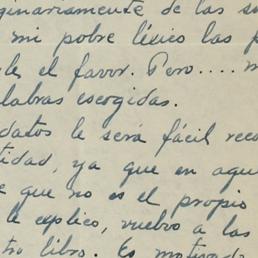 ginariamente de las su
mi pobre léxico las p
le el favor. Pero.... m
labras escogidas.
datos le será fácil reco
tidad, ya que en aque
e que no es el propio
le explico, vuelvo a las
tro libro. Es motivada